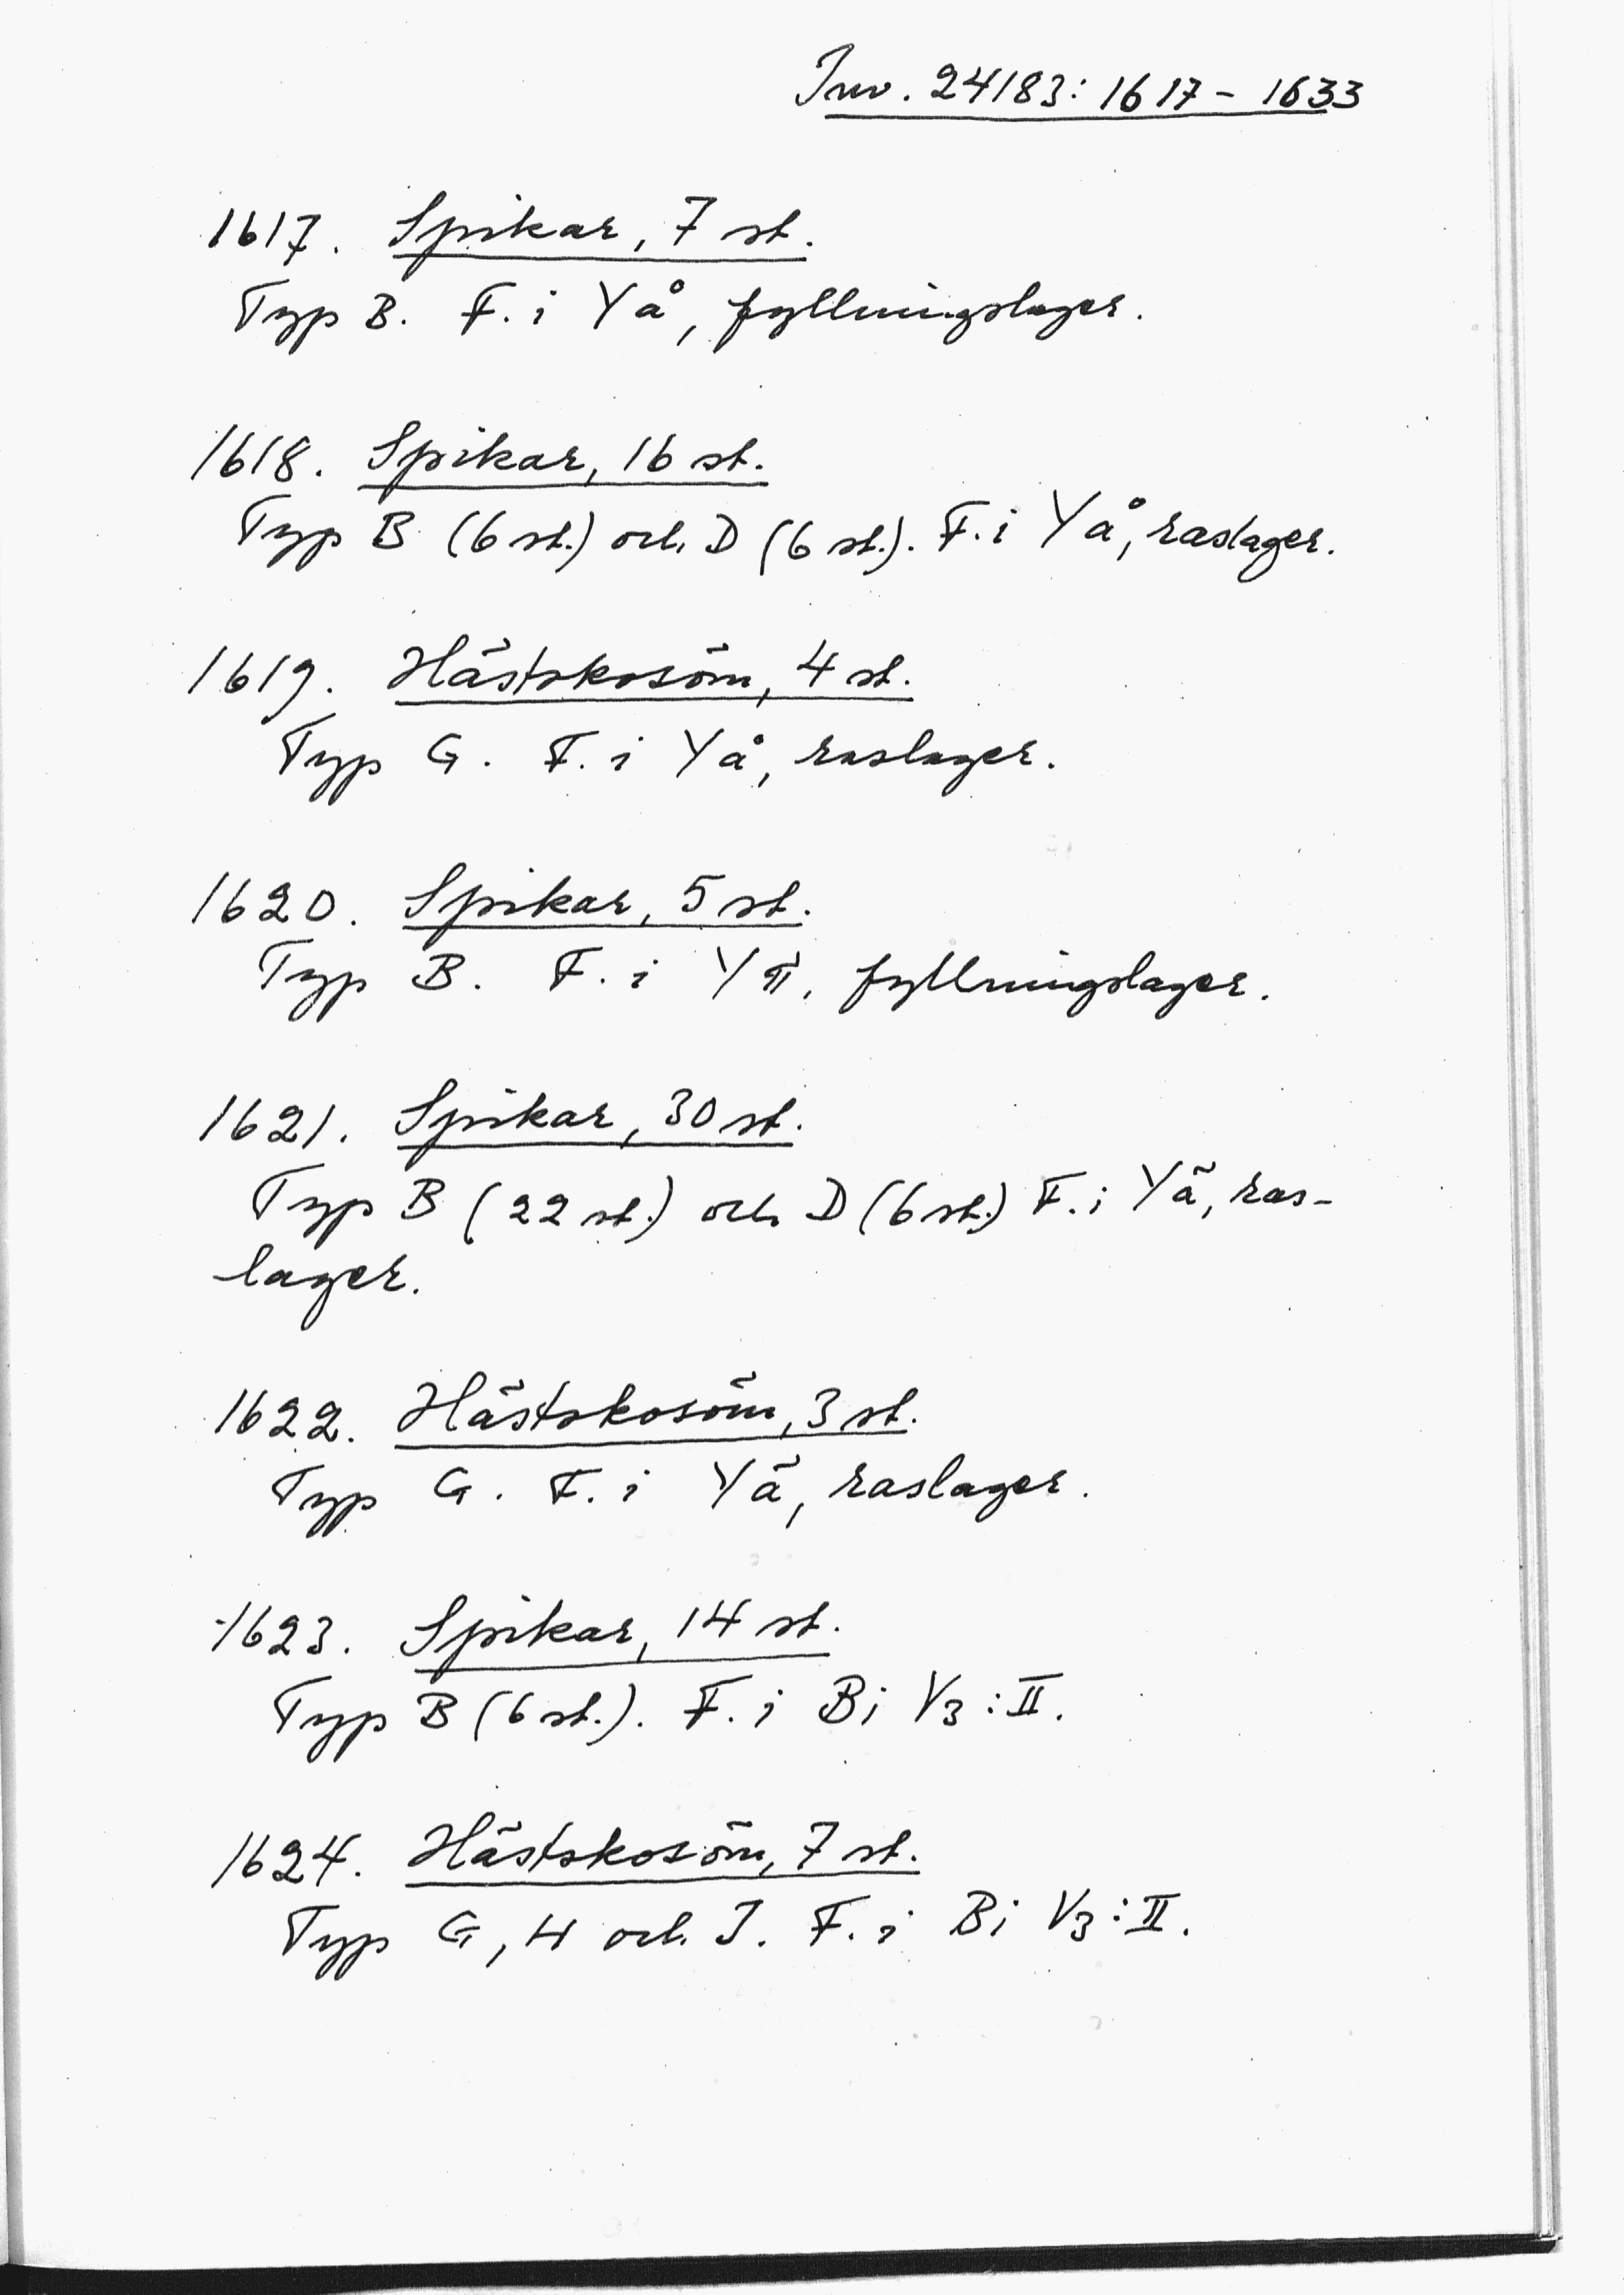 Inv. 24183: 1617 - 1633
1617. Spikar, 7 st.
Typ B. F. i Yå, fyllningslager.
1618. Spikar, 16 st.
Typ B (6 st.) och D (6 st.). F. i Yå, raslager.
1619. Hästskosöm, 4 st.
Typ G. F. i Yå, raslager.
1620. Spikar, 5 st.
Typ B. F. i Yä, fyllningslager.
1621. Spikar, 30 st.
Typ B (22 st.) och D (6 st.) F. i Yä, ras-
lager.
1622. Hästskosöm, 3 st.
Typ G. F. i Yä, raslager.
1623. Spikar, 14 st.
Typ B (6 st.). F. i Bi V3:II.
1624. Hästskosöm, 7 st.
Typ G, H och I. F. i Bi V3:II.